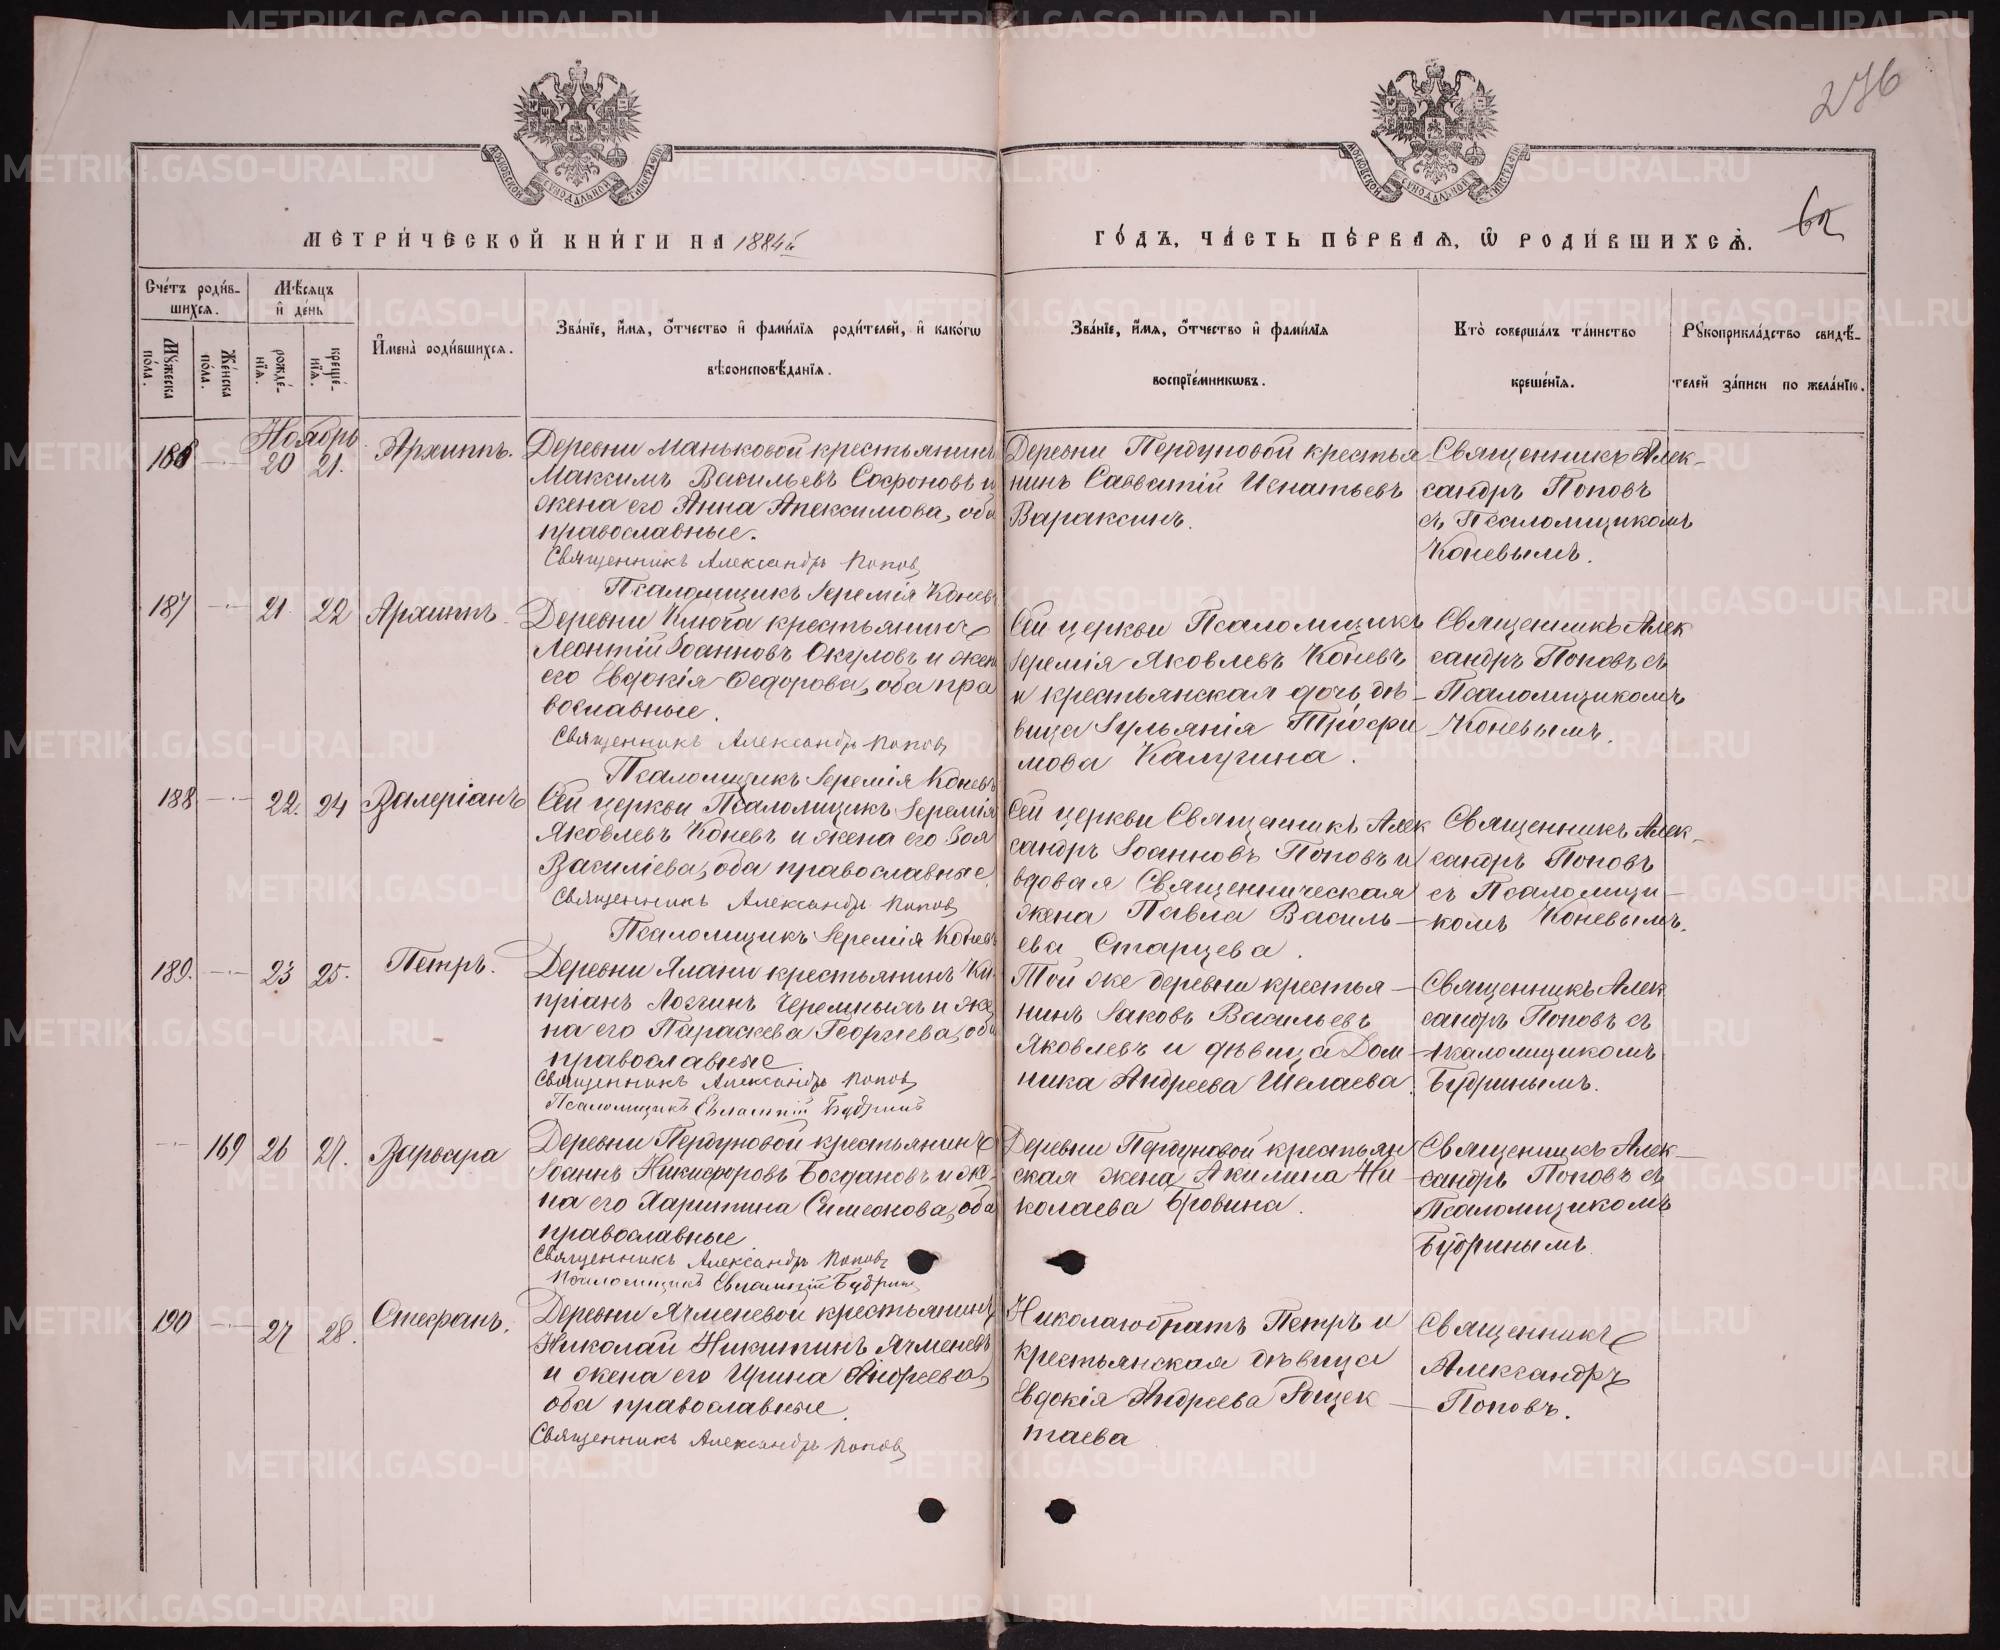 276
62
МЕТРИ́ЧЕСКОЙ КНИ́ГИ НА 1884й
ГО́ДЪ, ЧА́СТЬ ПЕ́РВАѦ, Ѡ҆ РОДИ́ВШИХСѦ.
МОСКОВСКОЙ СѴНОДАЛЬНОЙ ТИПОГРАФІИ
МОСКОВСКОЙ СѴНОДАЛЬНОЙ ТИПОГРАФІИ
Сче́тъ роди́в-
шихсѧ.
Мꙋжеска по́ла.
Же́нска по́ла.
Мѣ́сѧцъ
и҆ де́нь
рожде́-
нїѧ.
креще́-
нїѧ.
И҆мена̀ роди́вшихсѧ.
Зва́нїе, и҆́мѧ, ѻ҆́тчество и҆ фами́лїѧ роди́телей, и҆ како́гѡ
вѣроисповѣ́данїѧ.
Зва́нїе, и҆́мѧ, ѻ҆́тчество и҆ фами́лїѧ
воспрїе́мникѡвъ.
Кто̀ соверша́лъ та́инство
креще́нїѧ.
Рꙋкоприкла́дство свидѣ́-
телей за́писи по жела́нїю.
Ноябрь
186 20 21. Архиппъ.
Деревни Маньковой крестьянинъ
Максимъ Васильевъ Софроновъ и
жена его Анна Алексимова, оба
православные.
Священникъ Александръ Попов
Псаломщикъ Іеремія Коневъ
Деревни Пердуновой крестья
нинъ Савватій Игнатьевъ
Вараксинъ.
Священникъ Алек-
сандръ Поповъ
съ Псаломщикомъ
Коневымъ.
187 21 22 Архиппъ.
Деревни Ключа крестьянинъ
Леонтій Іоанновъ Окуловъ и жена
его Евдокія Федорова, оба пра
вославные.
Священникъ Александръ Попов
Псаломщикъ Іеремія Коневъ
Сей церкви Псаломщикъ
Іеремія Яковлевъ Коневъ
и крестьянская дочь дѣ-
вица Іульянія Трофи
мова Калугина.
Священникъ Алек
сандръ Поповъ съ
Псаломщикомъ
Коневымъ.
188 22. 24 Валеріанъ
Сей церкви Псаломщикъ Іеремія
Яковлевъ Коневъ и жена его Зоя
Василіева, оба православные
Священникъ Александръ Попов
Псаломщикъ Іеремія Коневъ
Сей церкви Священникъ Алек
сандръ Іоанновъ Поповъ и
вдовая Священническая
жена Павла Василь-
ева Старцева.
Священникъ Алек-
сандръ Поповъ
съ Псаломщи-
комъ Коневымъ.
189. 23 25. Петръ.
Деревни Ялани крестьянинъ Ки
пріанъ Логгинъ Черемныхъ и же
на его Параскева Георгіева, оба
православные
Священникъ Александръ Попов
Псаломщикъ Евлампій Будринъ
Той же деревни крестья-
нинъ Іаковъ Васильевъ
Яковлевъ и дѣвица Дом-
ника Андреева Шелаева.
Священникъ Алек
сандръ Поповъ съ
Псаломщикомъ
Будринымъ.
169 26 27. Варвара
Деревни Пердуновой крестьянинъ
Іоаннъ Никифоровъ Богдановъ и же-
на его Харитина Симеонова, оба
православные
Священникъ Александръ Попов
Псаломщикъ Евлампій Будрин
Деревни Пердуновой крестьян
ская жена Акилина Ни
колаева Бровина.
Священникъ Алек-
сандръ Поповъ съ
Псаломщикомъ
Будринымъ.
190 27 28. Стефанъ.
Деревни Ячменевой крестьянинъ
Николай Никитинъ Ячменевъ
и жена его Ирина Андреева,
оба православные.
Священникъ Александръ Попов
Николаю братъ Петръ и
крестьянская дѣвица
Евдокія Андреева Рощек-
таева
Священникъ
Александръ
Поповъ.